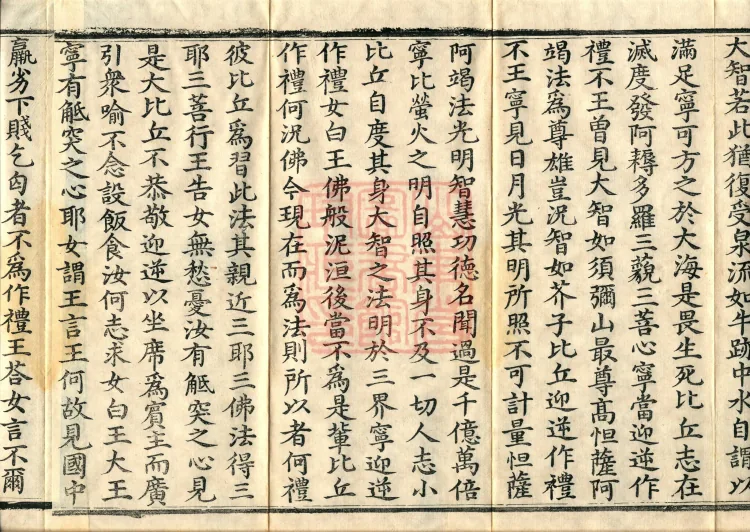 大智若此猶復受泉流如牛跡中水自謂以
滿足寧可方之於大海是畏生死比丘志在
滅度發阿耨多羅三藐三菩心寧當迎逆作
禮不王曾見大智如須彌山最尊高怛薩阿
竭法為尊雄豈況智如芥子比丘迎逆作禮
不王寧見日月光其明所照不可計量怛薩
阿竭法光明智慧功德名聞過是千億萬倍
寧比螢火之明自照其身不及一切人志小
比丘自度其身大智之法明於三界寧迎逆
作禮女白王佛般泥洹後當不為是輩比丘
作禮何況佛今現在而為法則所以者何禮
彼比丘為習此法其親近三耶三佛法得三
耶三菩行王告女無愁憂汝有觝突之心見
是大比丘不恭敬迎逆以坐席為賓主而廣
引衆喻不念設飯食汝何志求女白王大王
寧有觝突之心耶女謂王言王何故見國中
羸劣下賤乞匃者不為作禮王荅女言不爾